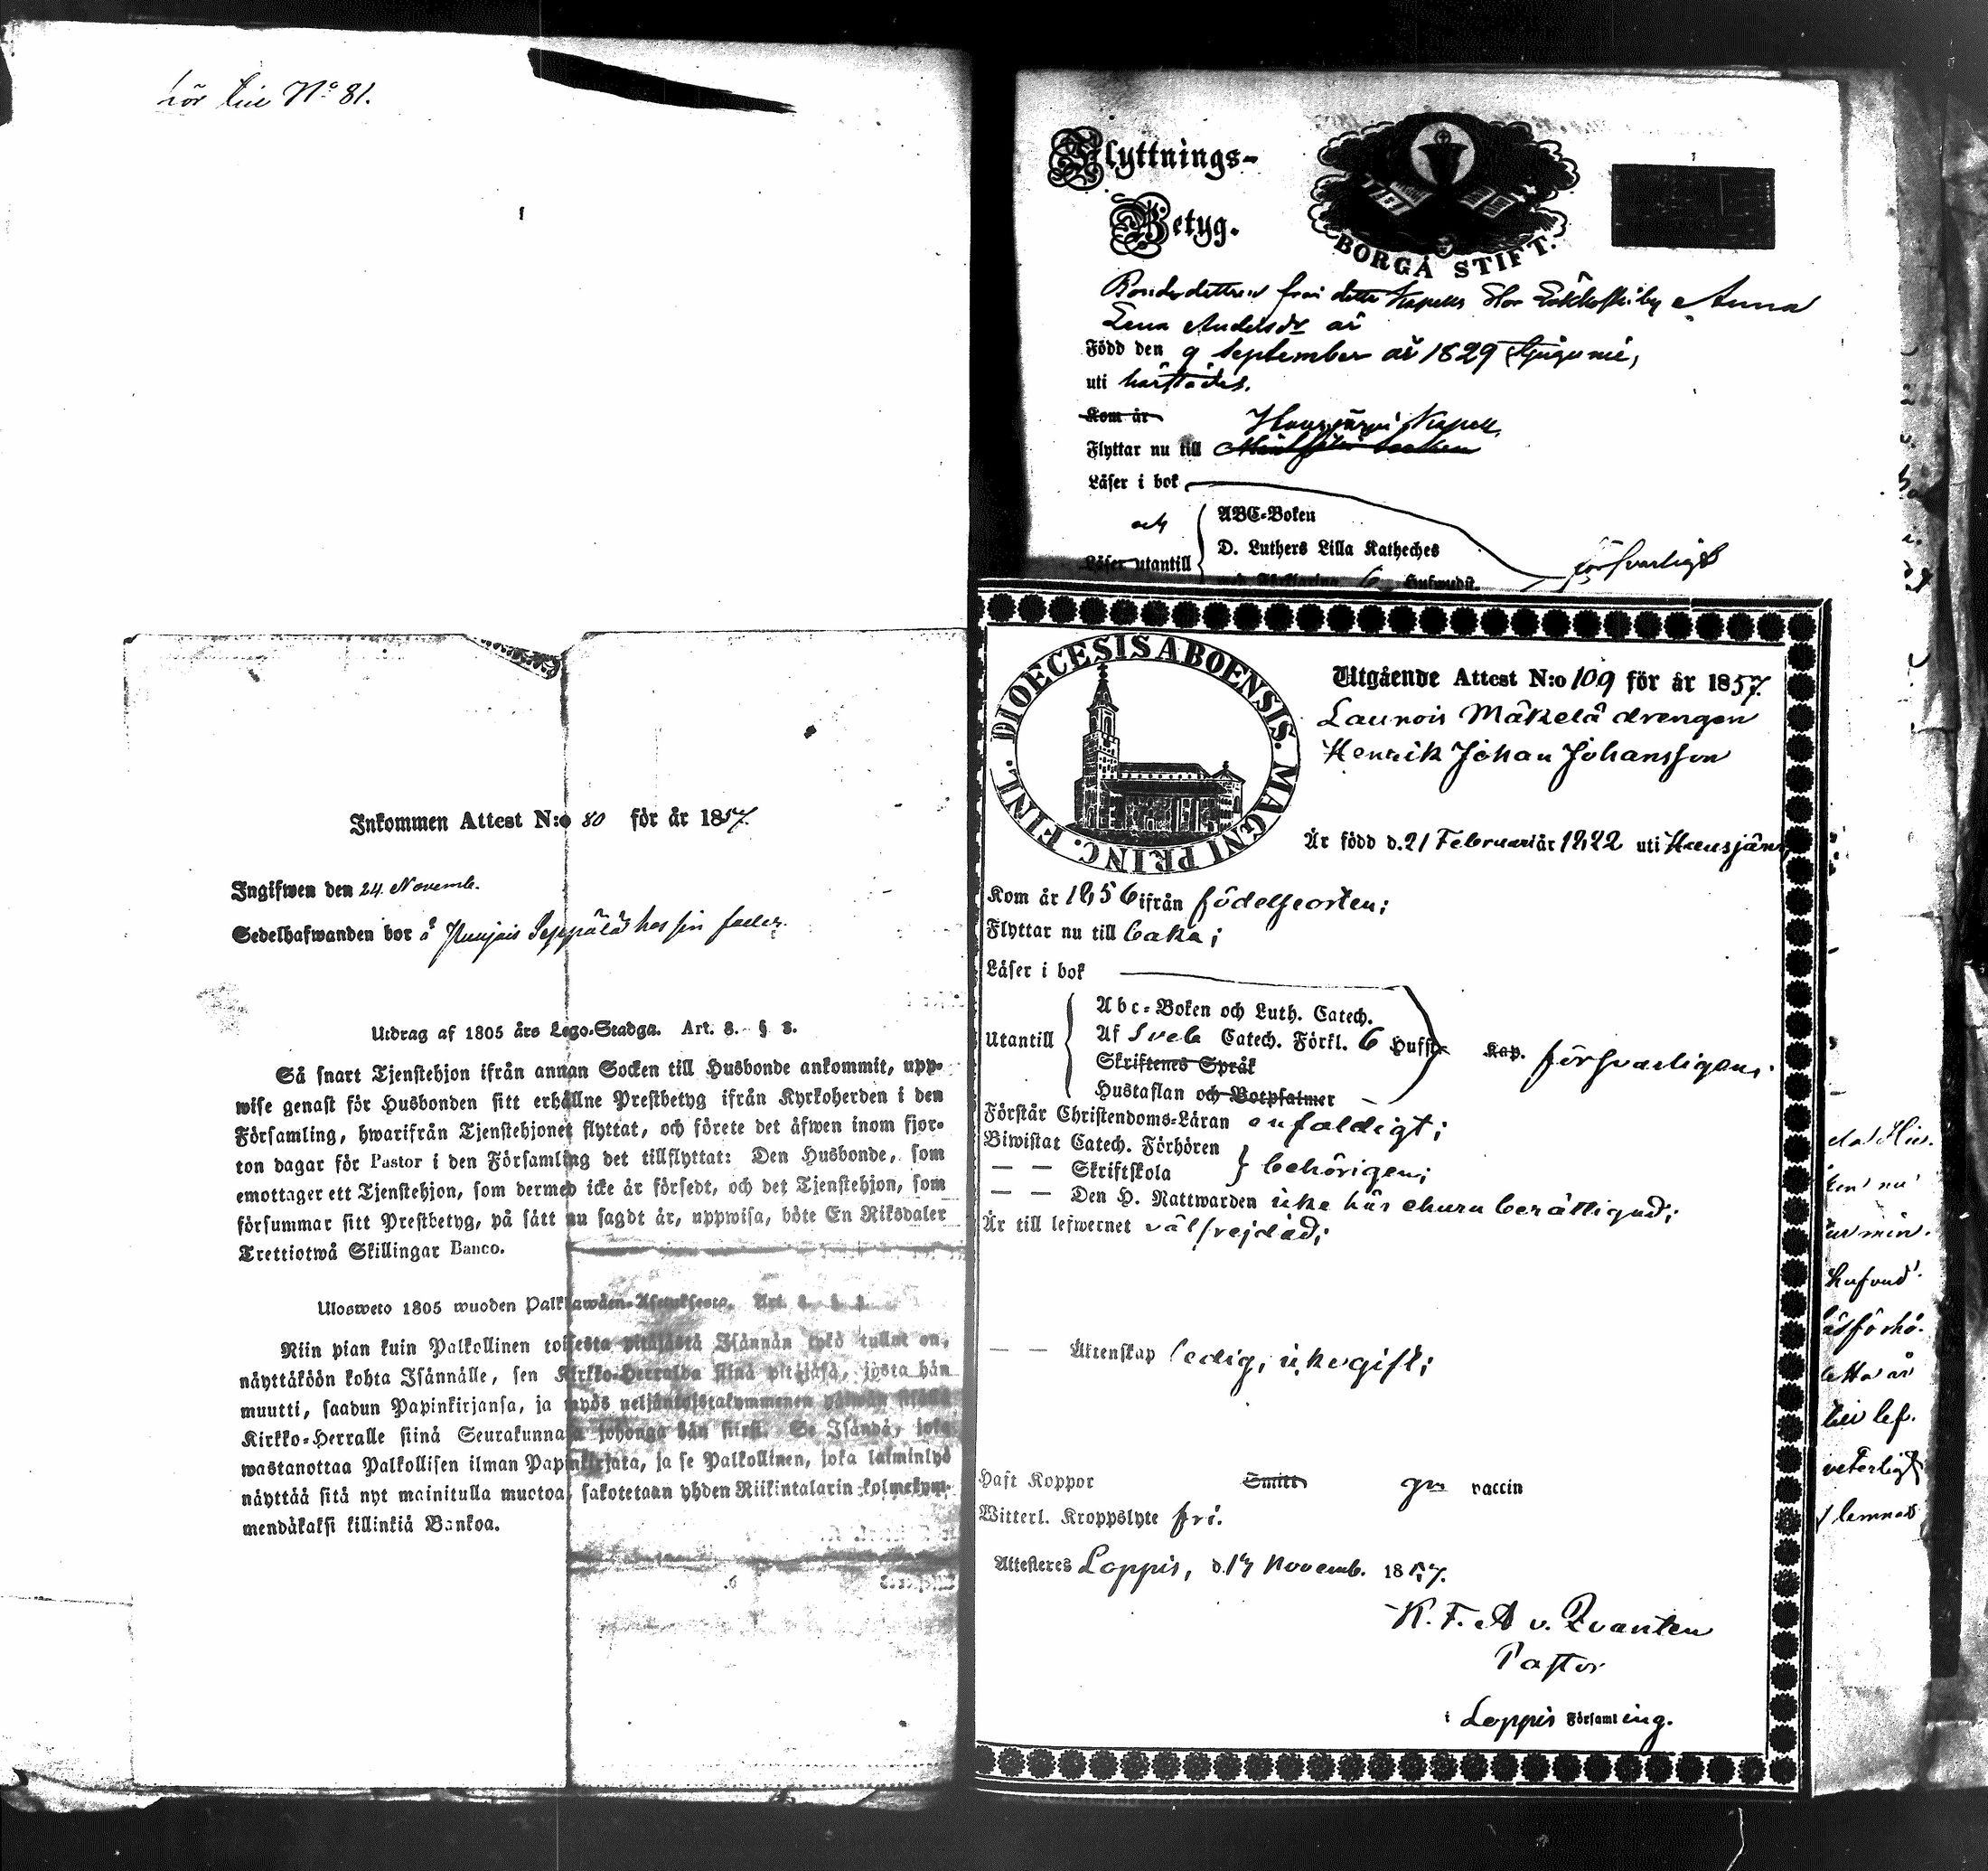 hör till No 81.
Inkommen Attest N:o 80 för år 1857.
Ingifwen den 24 Novemb.
Sedelhafwanden bor å Seppälä hos sin fader.
Utdrag af 1805 års Lego-Stadga. Art. 3. § 3.
Så snart Tjenstehjon ifrån annan Socken till Husbonde ankommit, upp-
wise genast för Husbonden sitt erhållne Prestbetyg ifrån Kyrkoherden i den
Församling, hwarifrån Tjenstehjonet flyttat, och förete det äfwen inom fjor-
ton dagar för Pastor i den Församling det tillflyttat: Den Husbonde, som
emottager ett Tjenstehjon, som dermed icke är försedt, och det Tjenstehjon, som
försummar sitt Prestbetyg, på sätt nu sagdt är, uppwisa, böte En Riksdaler
Trettiotwå Skillingar Banco.
Ulosweto 1805 wuoden Palkkawäen-Asetuksesta. Art.
Niin pian kuin Palkollinen toisesta pitäjästä Isännän tykö tullut on,
näyttäköön kohta Isännälle, sen Kirkko-Herralda siinä pitäjäsä, josta hän
muutti, saadun Papinkirjansa, ja myös neljäntoistakymmenen päiwän sisällä
Kirkko-Herralle siinä Seurakunnasa johonga hän siirsi. Se Isändä, joka
wastanottaa Palkollisen ilman Papinkirjata, ja se Palkollinen, joka laiminlyö
näyttää sitä nyt mainitulla muotoa, sakotetaan yhden Riikintalarin kolmekym-
mendäkaksi killinkiä Bankoa.
Flyttnings-
Betyg.
BORGÅ STIFT.
Bondedottren från detta Kapells Anna
Lena Andersdr är
Född den 9 September år 1829
uti härstädes.
Kom år
Hausjärvi Kapell,
Flyttar nu till
Läser i bok
och
ABC-Boken
D. Luthers Lilla Katheches
Läser utantill
försvarligt
med Förklaring 6 Hufwudst.
DIOECESIS ABOENSIS. MAGNI PRINC. FINL.
Utgående Attest N:o 109 för år 1857.
Launois Mäkelä drengen
Henrik Johan Johansson
Är född d. 21 Februari år 1822 uti Hausjärvi
Kom år 1856 ifrån födelseorten;
Flyttar nu till baka;
Läser i bok
Abc-Boken och Luth. Catech.
Utantill
Af Sveb Catech. Förkl. 6 Hufst. Kap. försvarligen;
Skriftenes Språk
Hustaflan och Botpsalmer
Förstår Christendoms-Läran enfaldigt;
Biwistat Catech. Förhören
— — Skriftskola
behörigen;
— — Den H. Nattwarden icke här ehuru berättigad;
Är till lefwernet välfrejdad;
— — Äktenskap ledig, icke gift;
Haft Koppor Smitt gm vaccin
Witterl. Kroppslyte fri.
Attesteres Loppis, d. 17 Novemb. 1857.
K. F. A v. Qvanten
Pastor
i Loppis Församling.